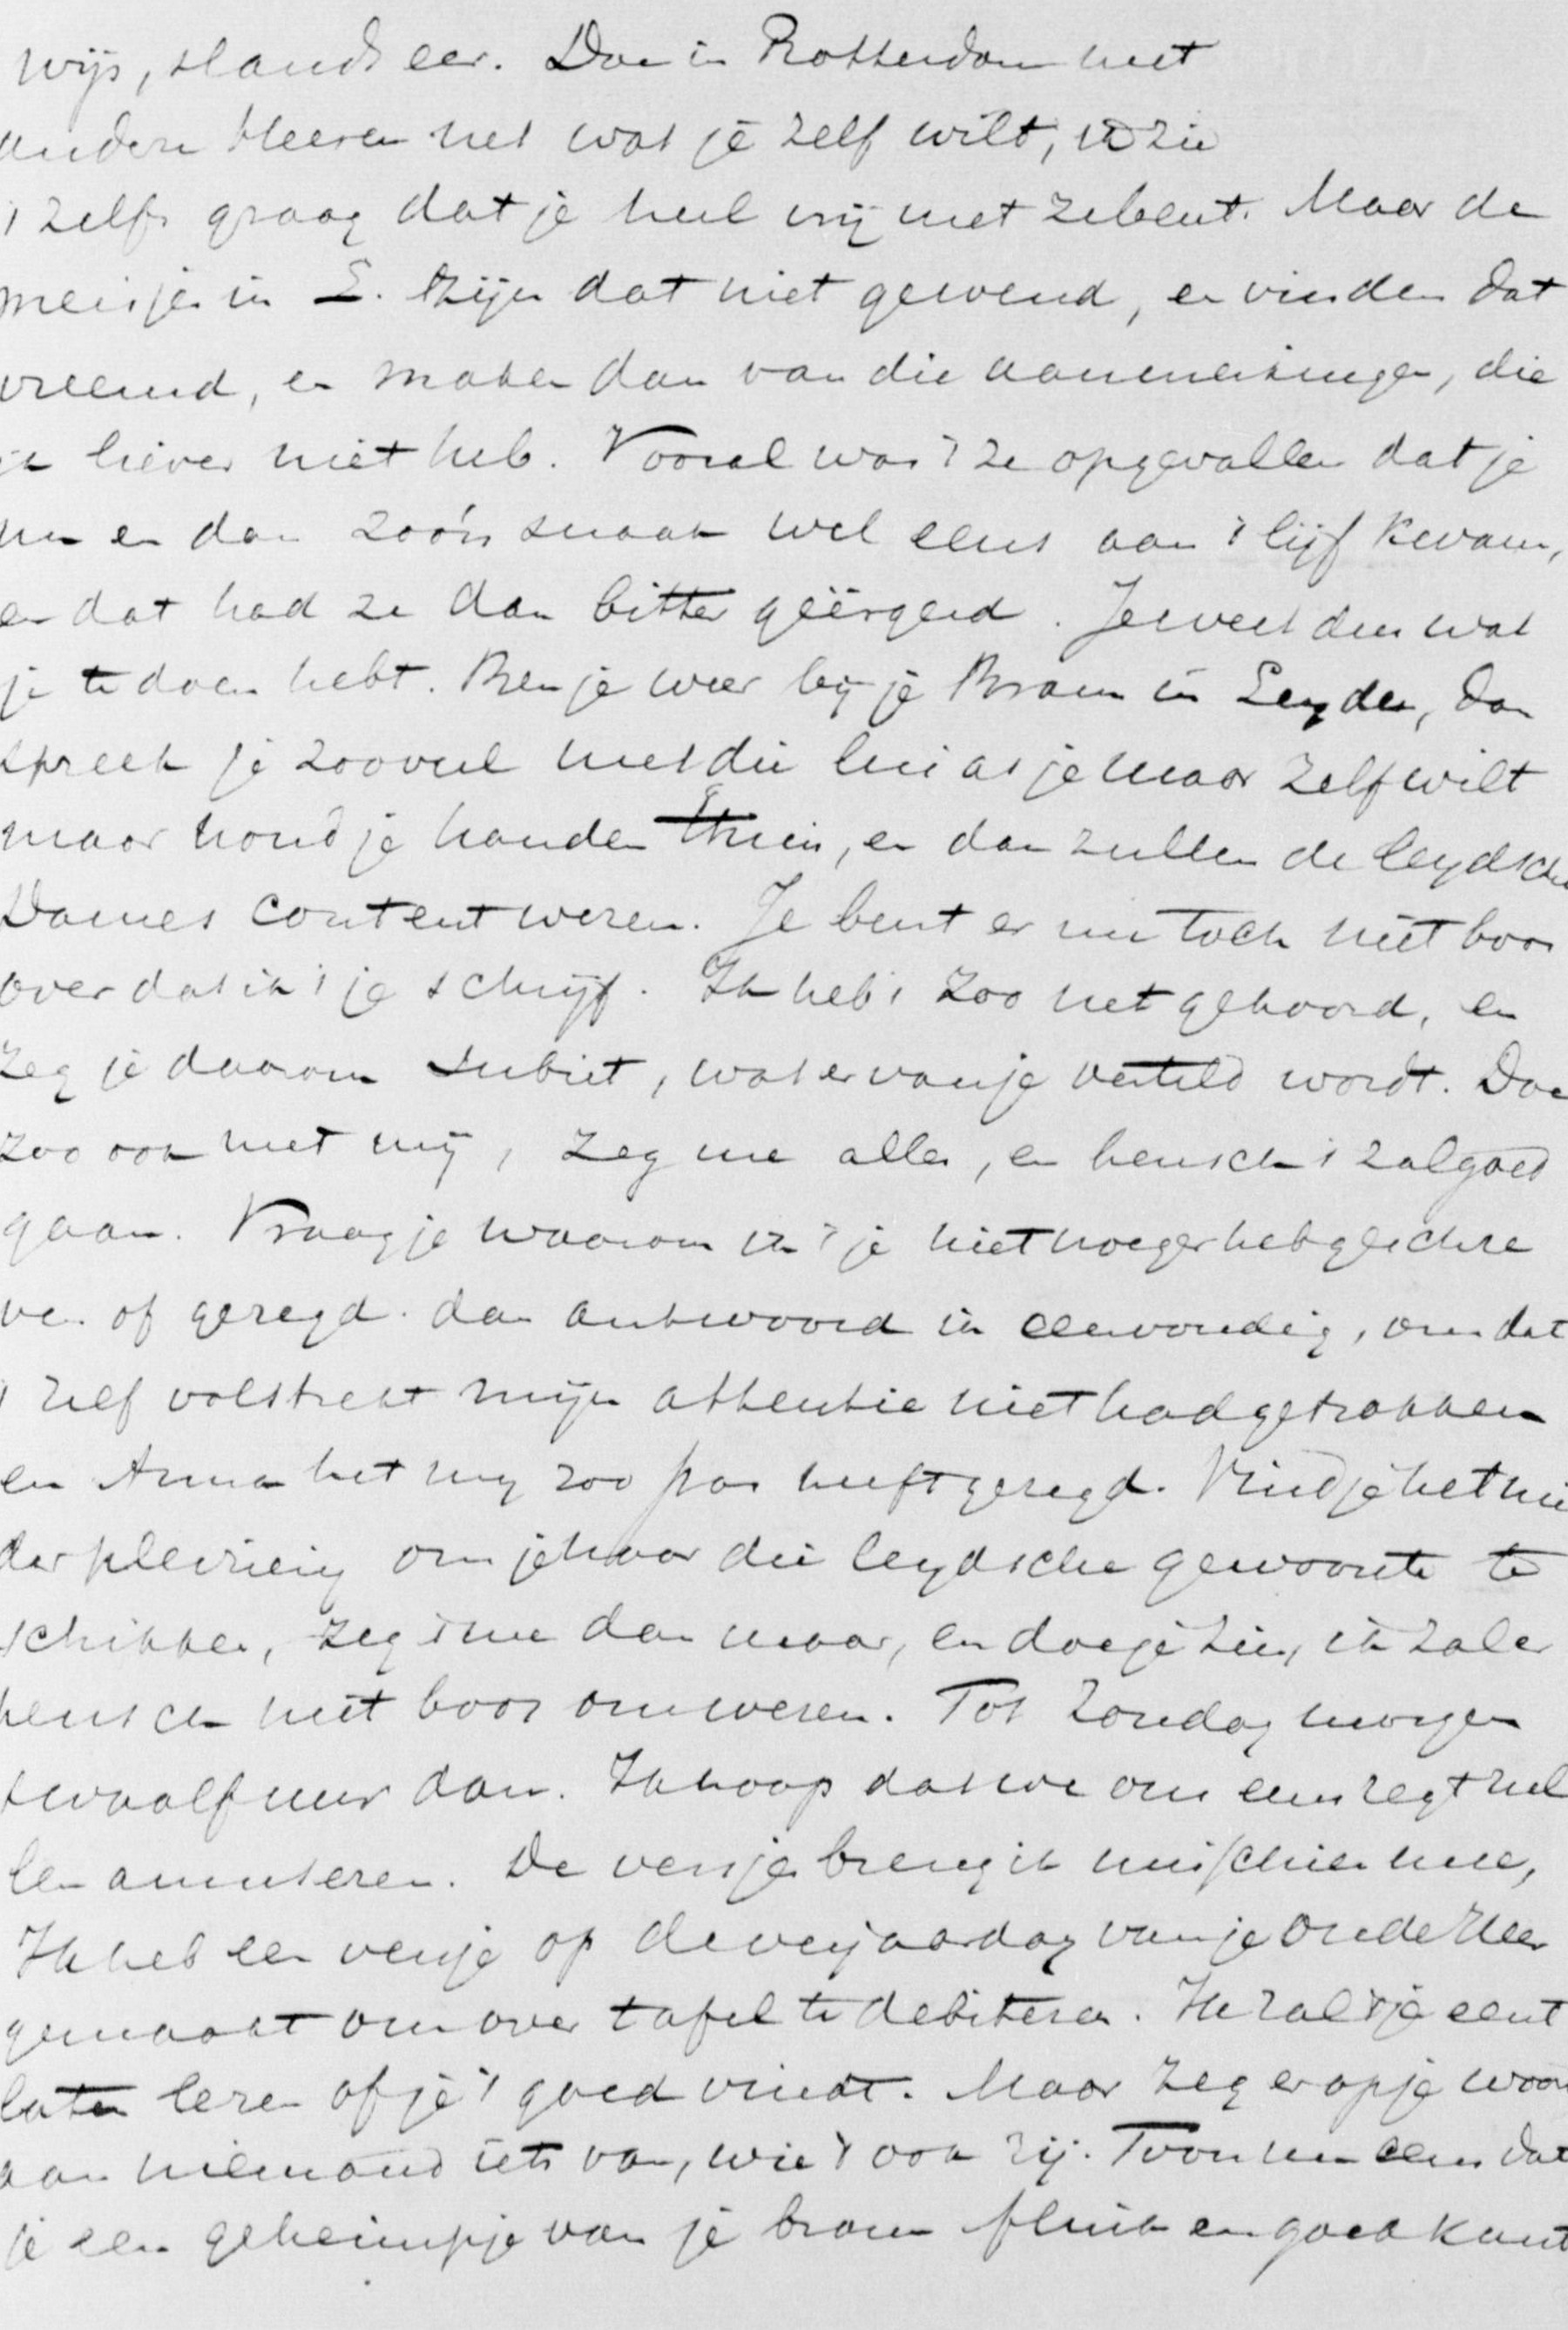 wijs, slands eer. Doe in Rotterdam met
andere Heeren net wat je zelf wilt, ik zie
't zelfs graag dat je heel vrij met ze bent. Maar de
meisjes in L. zijn dat niet gewend, en vinden dat
vreemd, en maken dan van die aanmerkingen, die
ik liever niet heb. Vooral was 't ze opgevallen dat je
nu en dan zoo'n snaak wel eens aan 't lijf kwam,
en dat had ze dan bitter geërgerd. Je weet dus wat
je te doen hebt. Ben je weer bij je Bram in Leyden, dan
spreek je zooveel met die lui as je maar zelf wilt
maar houd je handen thuis, en dan zullen de leydsche
Dames content wezen. Je bent er nu toch niet boos
over dat ik 't je schrijf. Ik heb 't zoo net gehoord, en
zeg je daarom subiet, wat er van je verteld wordt. Doe
zoo ook met mij, zeg me alles, en heusch 't zal goed
gaan. Vraag je waarom ik 't je niet vroeger heb geschre
ven of gezegd. dan antwoord ik eenvoudig, omdat
't zelf volstrekt mijn attentie niet had getrokken
en Anna het mij zoo pas heeft gezegd. Vind je het min
der pleizierig om je naar die leydsche gewoonte te
schikken, zeg 't me dan maar, en doe je zin, ik zal er
heusch niet boos om wezen. Tot Zondag morgen
twaalf uur dan. Ik hoop dat we ons eens regt zul
len amuseren. De versjes breng ik misschien mee,
Ik heb een versje op de verjaardag van je Oude Heer
gemaakt om over tafel te debiteren. Ik zal 't je eerst
laten lezen of je 't goed vindt. Maar zeg er op je woord
aan niemand iets van, wie 't ook zij. Toon nu eens dat
je een geheimpje van je bram flink en goed kunt